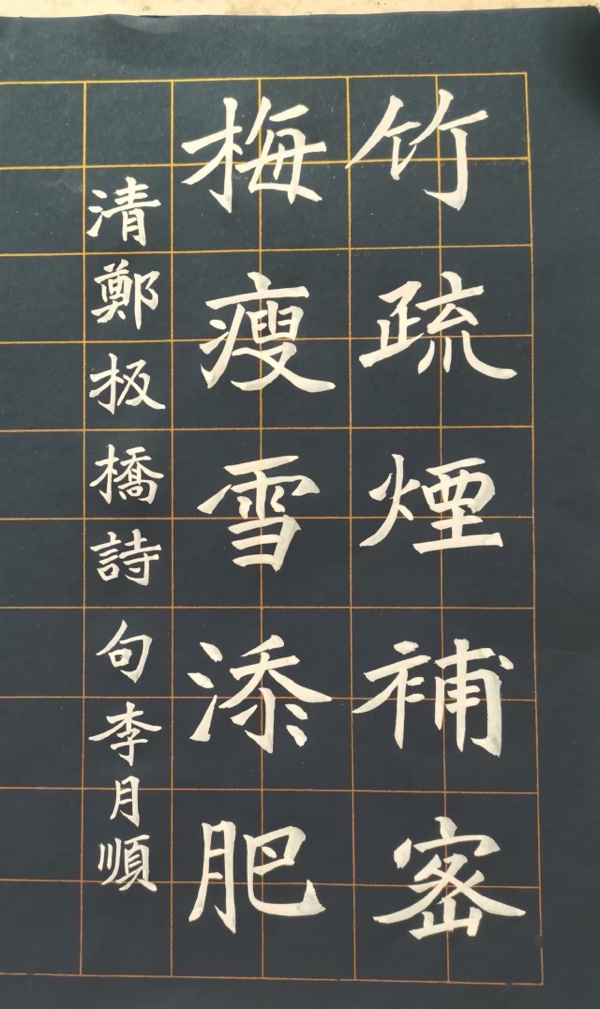 竹疏煙補密
梅瘦雪添肥
清鄭板橋詩句李月順